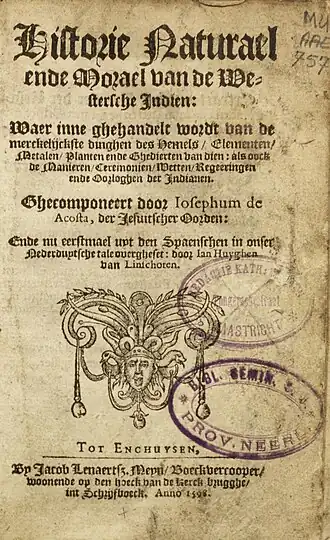 MU
AAD
757
Historie Naturael
ende Morael van de We-
stersche Indien:
Waer inne ghehandelt wordt van de
merckelijckste dinghen des Hemels / Elementen /
Metalen / Planten ende Ghedierten van dien: als oock
de Manieren / Ceremonien / Wetten / Regeeringen
ende Oorloghen der Indianen.
Ghecomponeert door Iosephum de
Acosta, der Jesuitscher Oorden:
Ende nu eerstmael uyt den Spaenschen in onser
Nederduytsche tale overgheset: door Ian Huyghen
van Linschoten.
MAASTRICHT
BIBL. SEMIN. S. J.
PROV. NEERL.
TOT ENCHUYSEN,
By Jacob Lenaertsz. Meyn / Boeckvercooper /
woonende op den hoeck van de kerck brugghe /
int Schrijfboeck. Anno 1598.